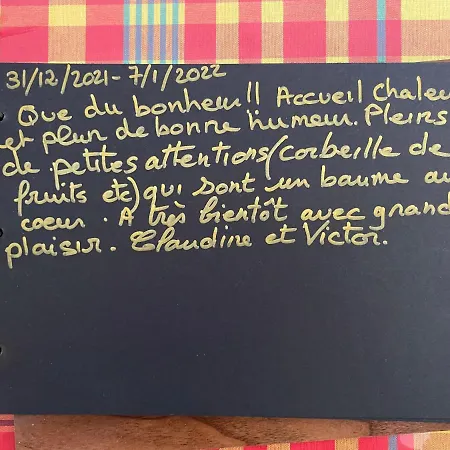 31/12/2021-7/1/2022
Que du bonheur!! Accueil chaleu
et plein de bonne humeur. Pleins
de petites attentions (corbeille de
fruits etc) qui sont un baume au
coeur. A très bientôt avec grand
plaisir. Claudine et Victor.